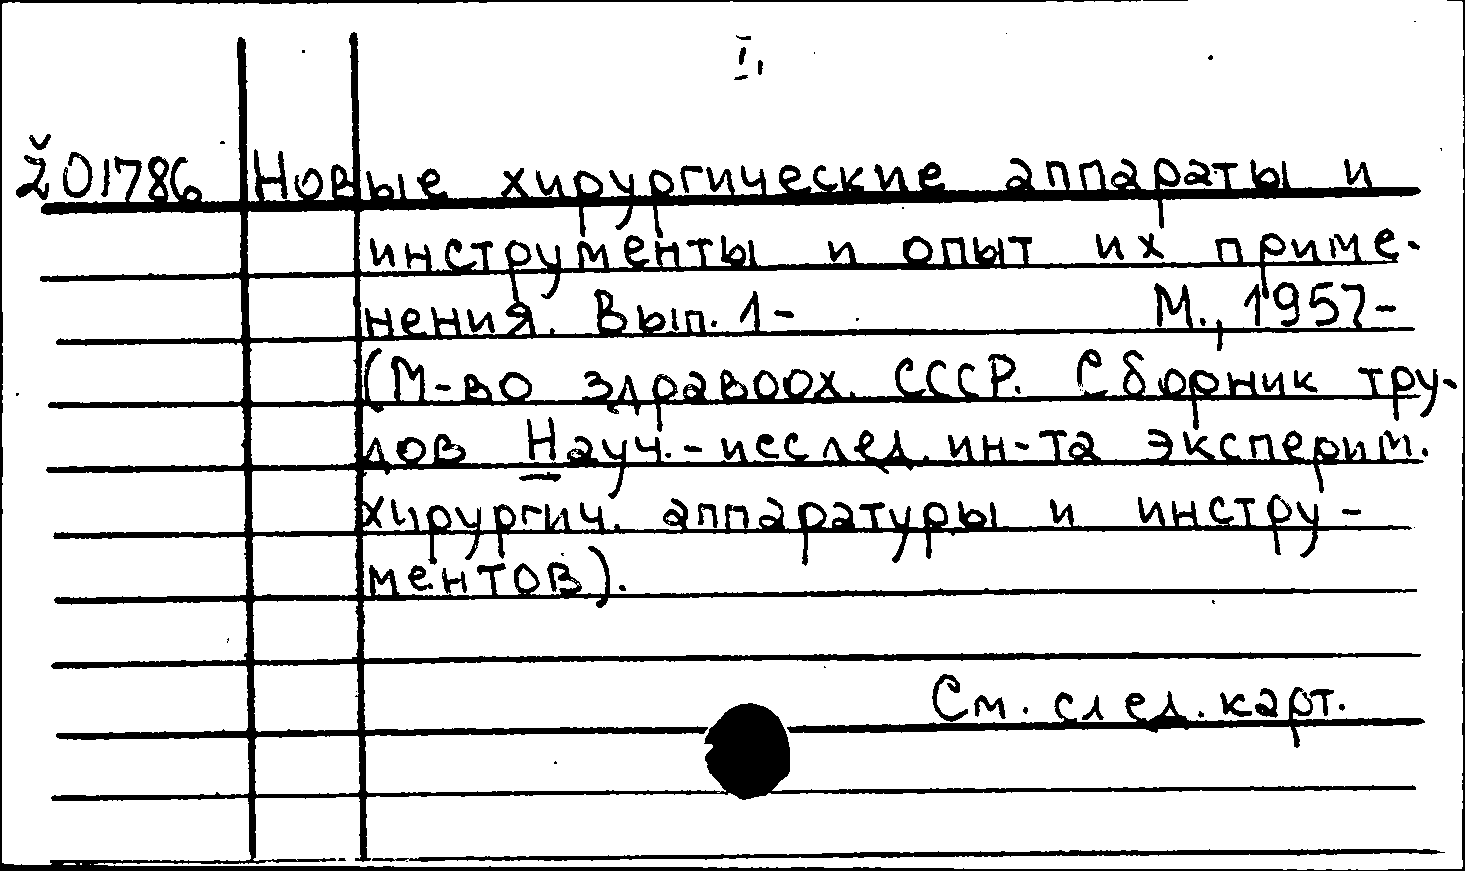 I,
Ž01786 Новые хирургические аппараты и
инструменты и опыт их приме-
нения. Вып. 1- М., 1957-
(М-во здравоох. СССР. Сборник тру-
дов Науч.-исслед. ин-та эксперим.
хирургич. аппаратуры и инстру-
ментов).
См. след. карт.